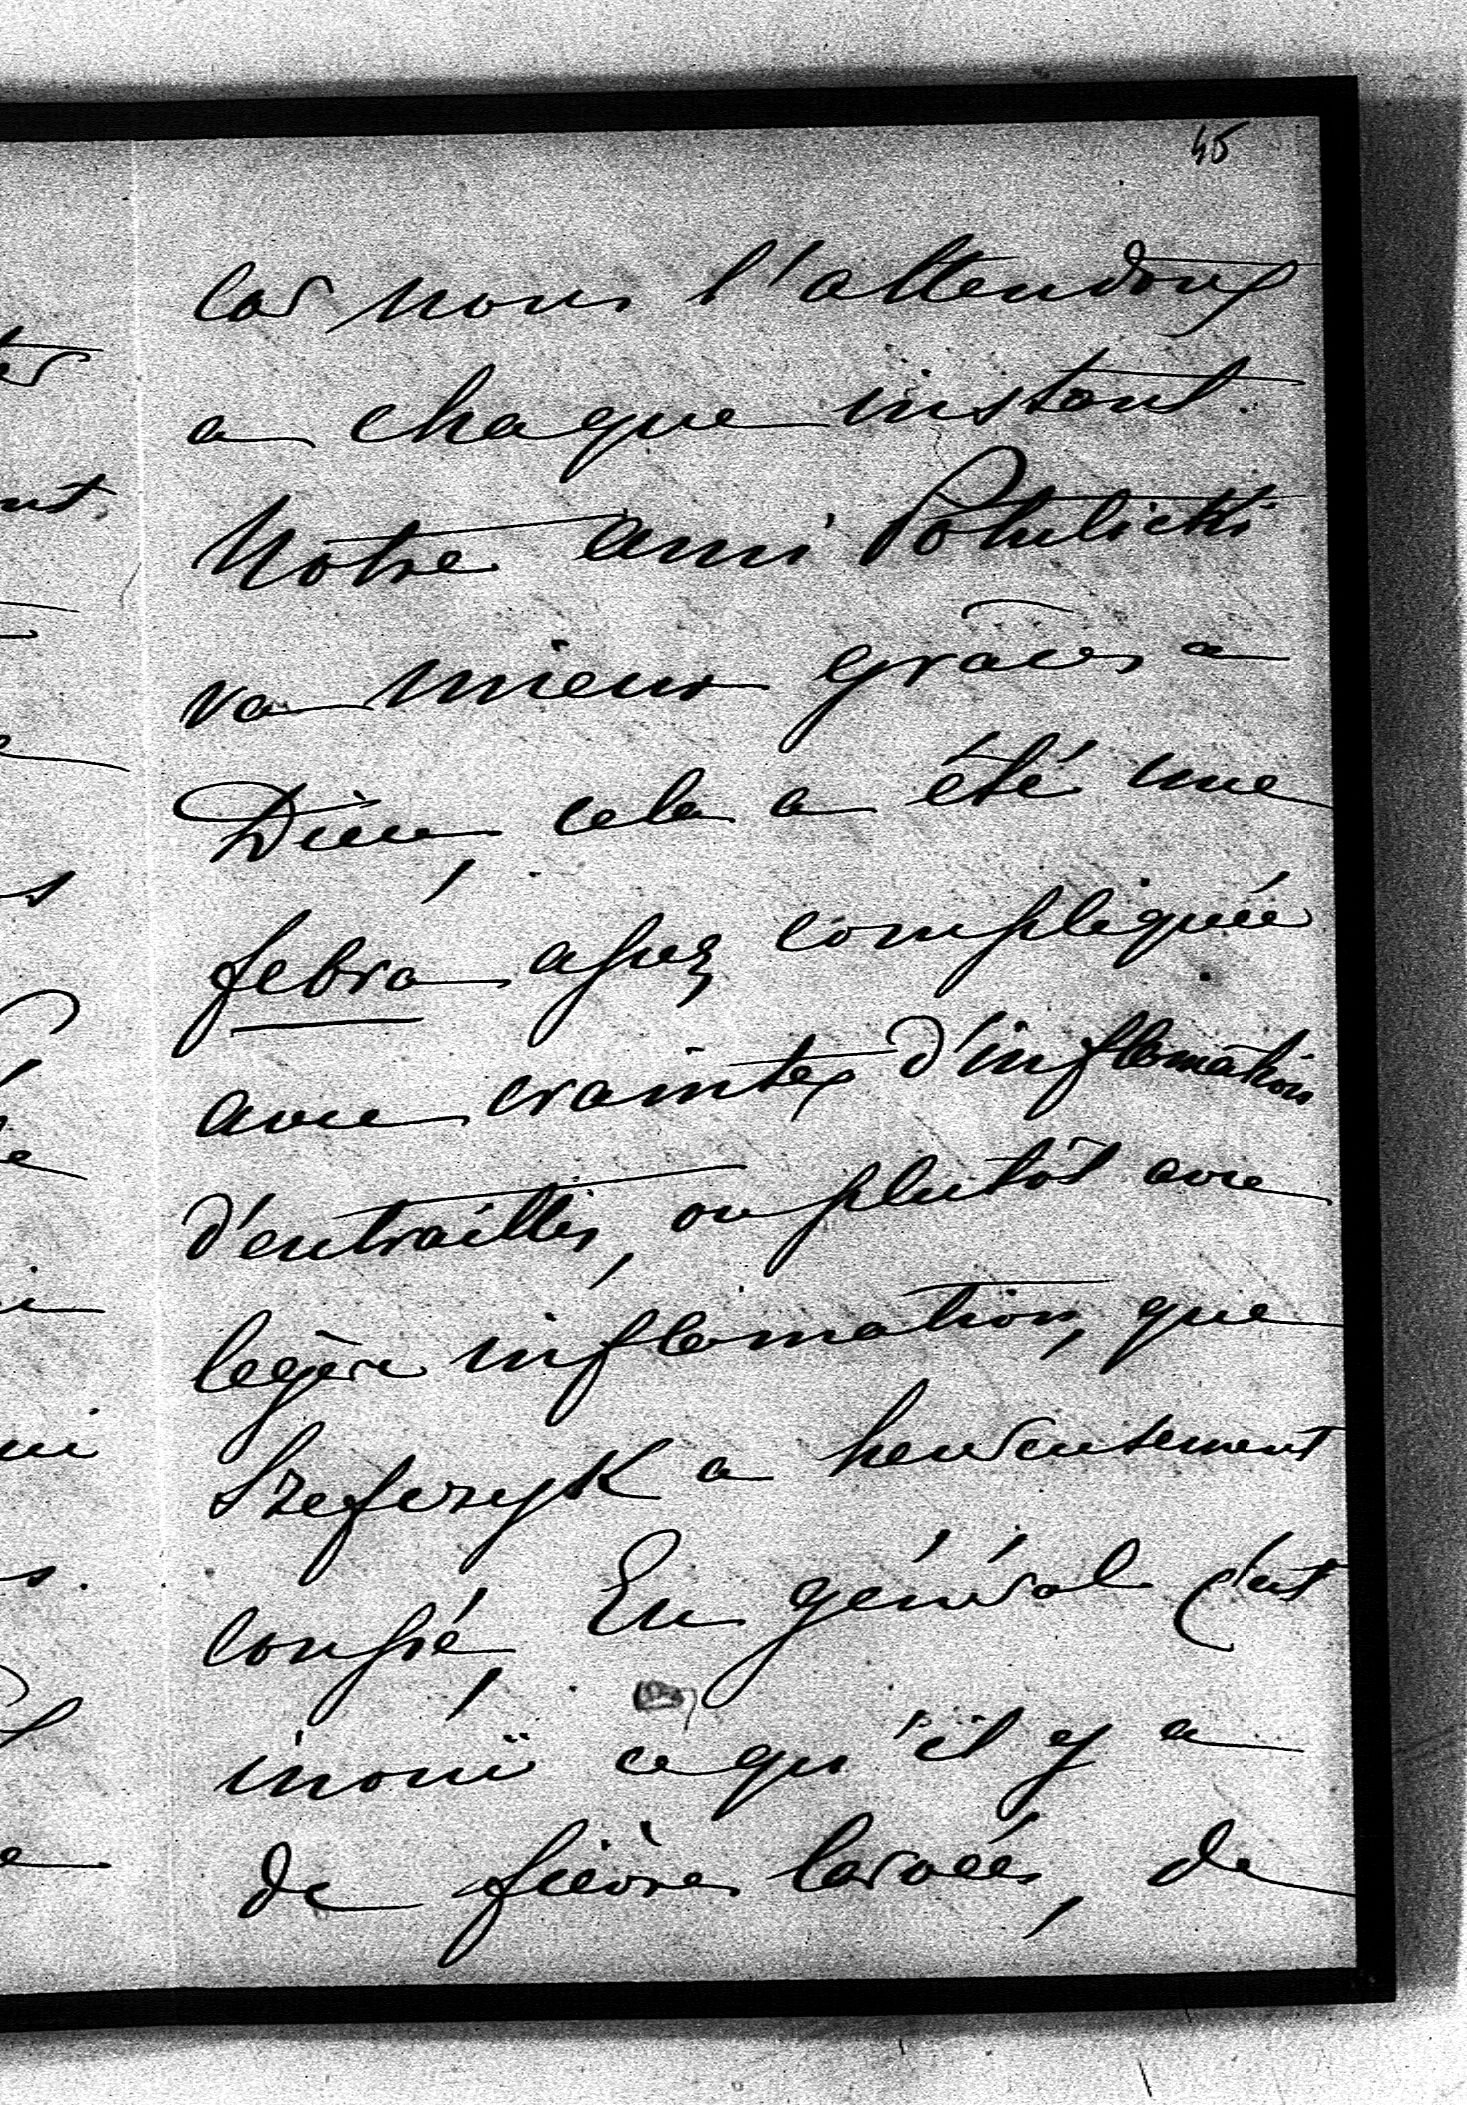 45
Car nous l'attendons
a chaque instant.
Notre ami Potulicki
va mieux grâces a
Dieu, cela a été une
febra assez compliquée
avec craintes d'inflamation
d'entrailles, ou plutôt avec
legère inflamation, que
Szefczyk a heureusement
coupé, En général c'est
inouï ce qu'il y a
de fièvres larvées, de